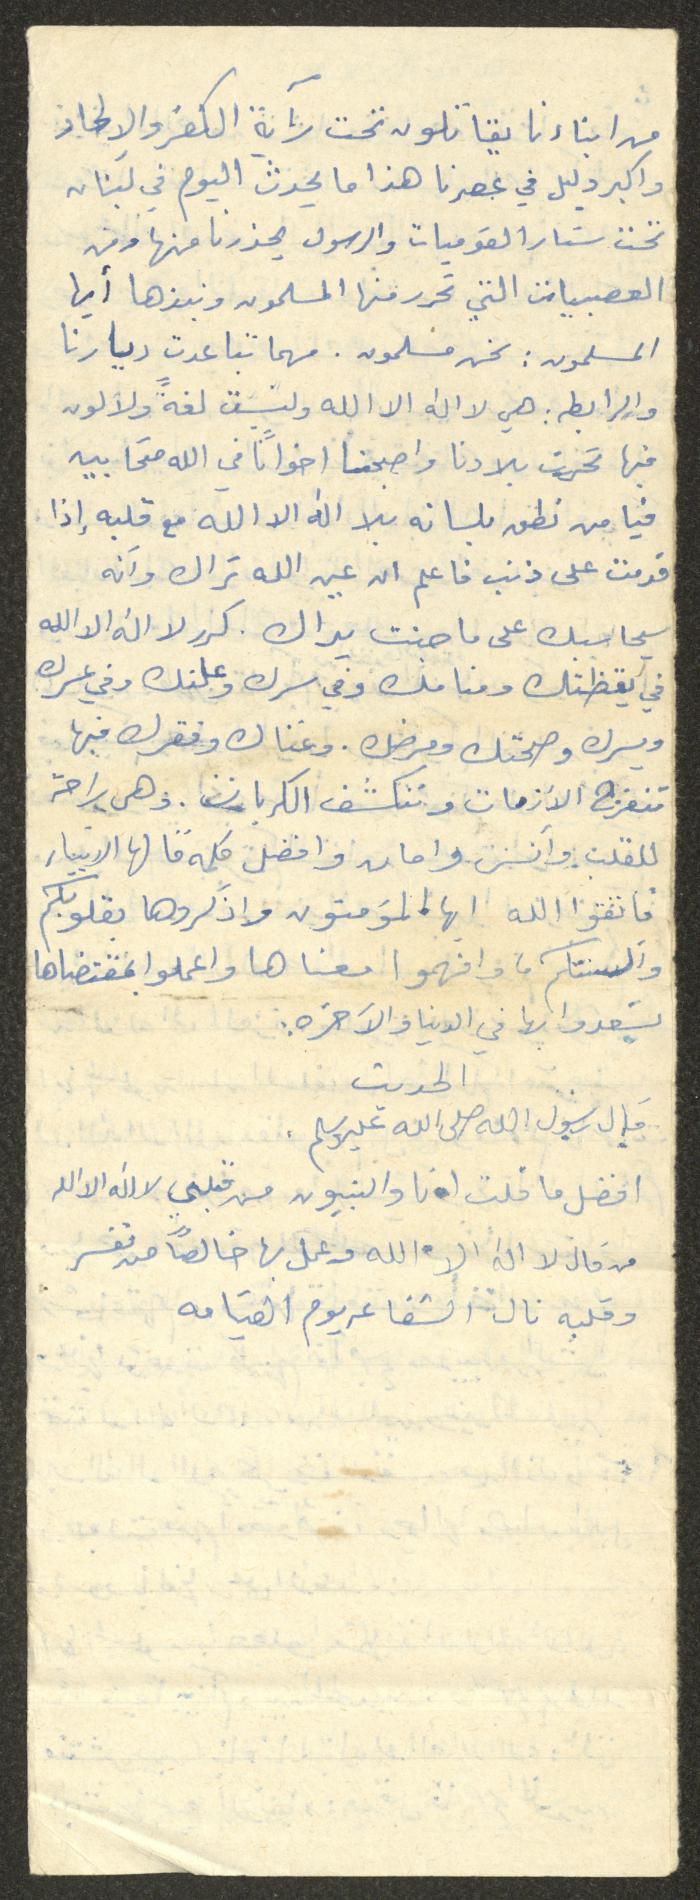 من ابناءنا يقاتلون تحت رآية الكفر والالحاد
واكبر دليل في عصرنا هذا ما يحدث اليوم في لبنان
تحت ستار القوميات والرسول يحذرنا منها ومن
العصبيات التي تحرر منها المسلمون ونبذها أيها
المسلمون : نحن مسلمون . مهما تباعدت ديارنا
والرابطه : هي لا اله الا الله وليست لغةً ولا لون
فبها تحررت بلادنا واصبحنا اخوانًا في الله متحابين
فيا من نطق بلسانه بلا اله الا الله مع قلبه إذا
قدمت على ذنب فاعلم ان عين الله تراك وأنه
سيحاسبك على ما جنت يداك . كرر لا اله الا الله
في يقظتك ومنامك وفي سرك وعلنك وفي عسرك
ويسرك وصحتك ومرضك . وغناك وفقرك فبها
تنفرج الازمات وتنكشف الكربات . وهي راحة
للقلب وأنس وامان وافضل كلمه قالها الانبياء
فاتقوا الله ايها المؤمنون واذكروها بقلوبكم
وألسنتكم وافهموا معناها واعملوا بمقتضاها
تسعدوا بها في الدنيا والآخره :
الحديث
قال رسول الله صلى الله عليه وسلم .
افضل ما قلت انا والنبيون من قبلي لا اله الا الله
من قال لا اله الا الله وعمل بها خالصًا من نفسه
وقلبه نال الشفاعه يوم القيامه